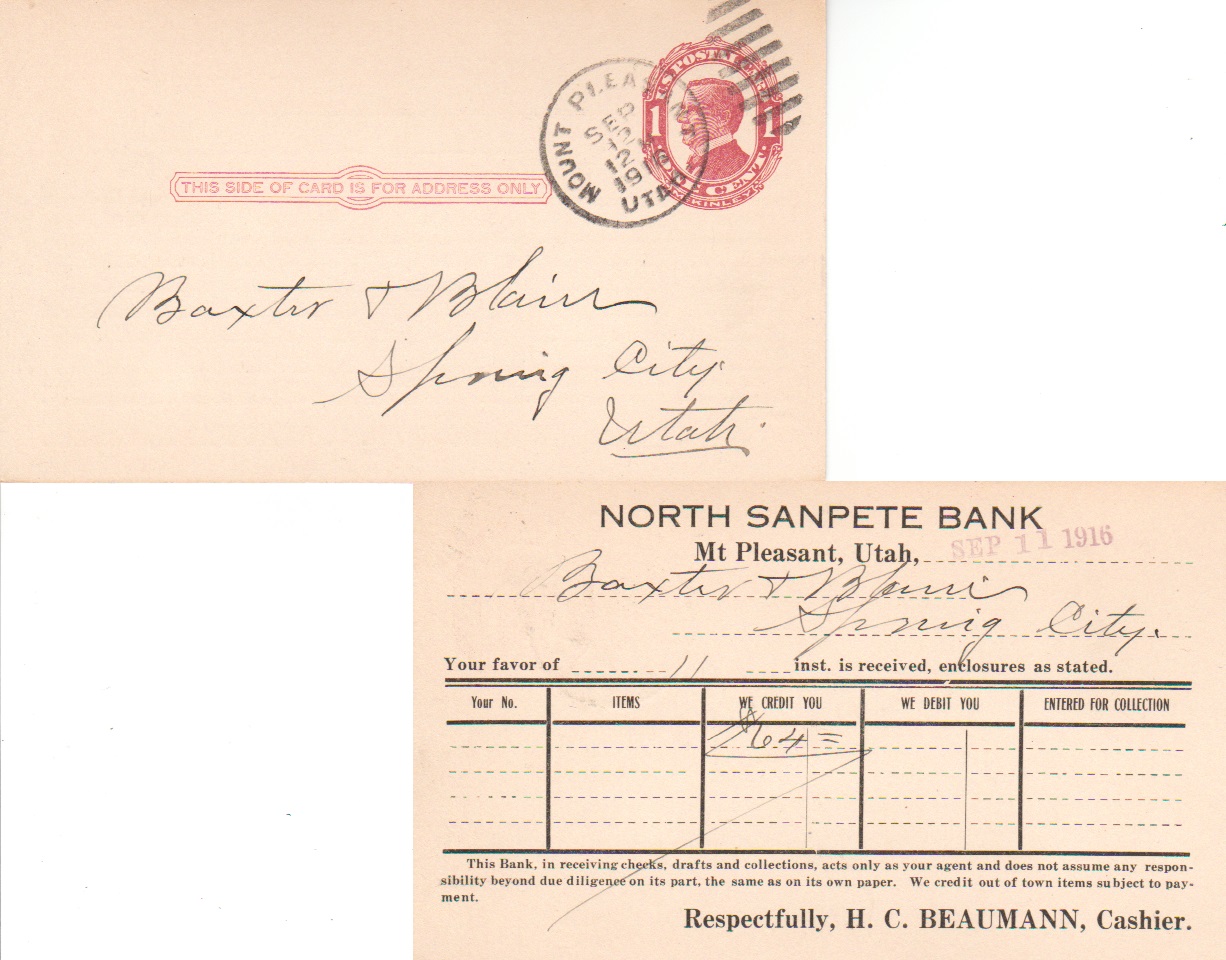 U.S. POSTAGE
1 1
ONE CENT.
McKINLEY
MOUNT PLEASANT
SEP
12
12 M
1916
UTAH
THIS SIDE OF CARD IS FOR ADDRESS ONLY
Baxter & Blain
Spring City
Utah.
NORTH SANPETE BANK
Mt Pleasant, Utah, SEP 11 1916
Baxter & Blain
Spring City.
Your favor of 11 inst. is received, enclosures as stated.
Your No. ITEMS WE CREDIT YOU WE DEBIT YOU ENTERED FOR COLLECTION
$64=
This Bank, in receiving checks, drafts and collections, acts only as your agent and does not assume any respon-
sibility beyond due diligence on its part, the same as on its own paper. We credit out of town items subject to pay-
ment.
Respectfully, H. C. BEAUMANN, Cashier.